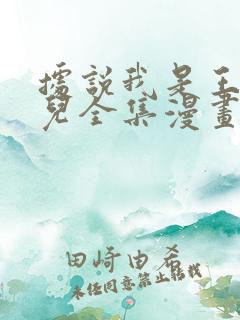 據說我是王
兒全集漫畫
田崎由希
未經同意禁止轉載